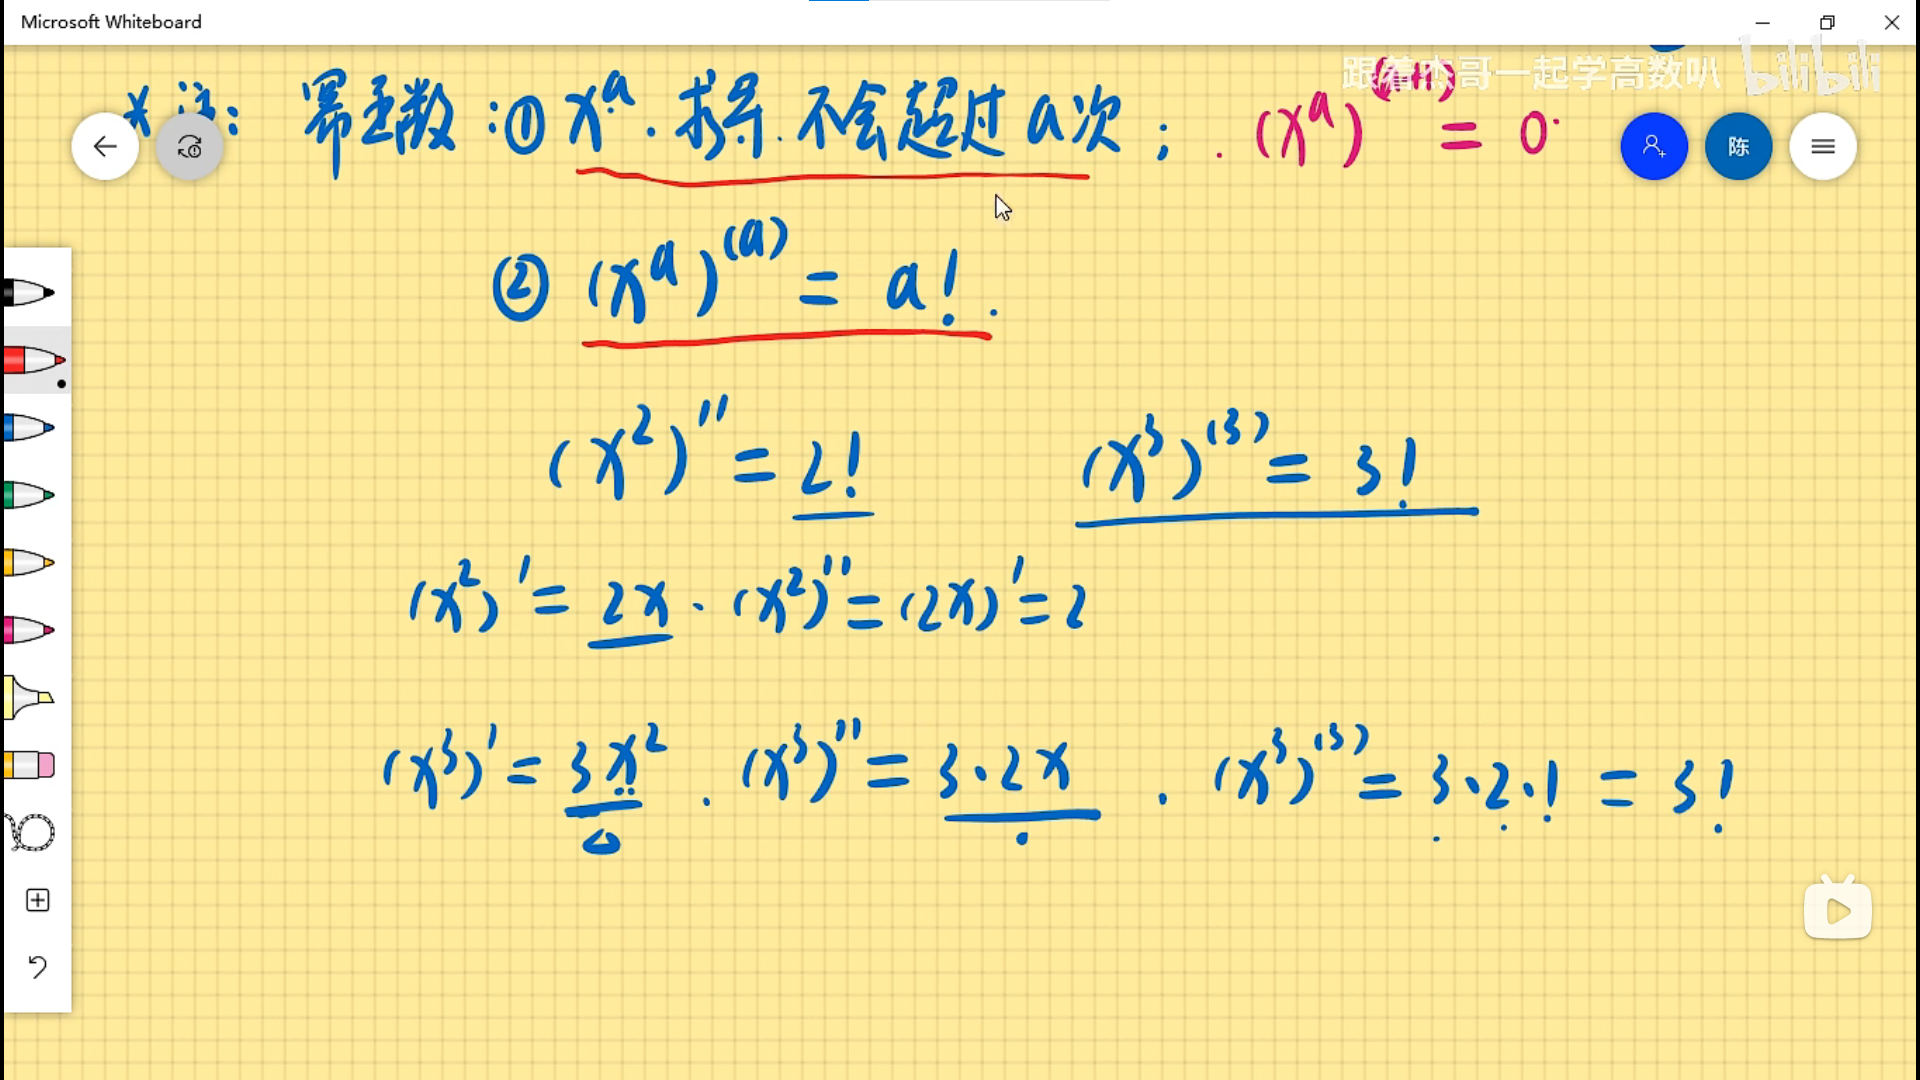 Microsoft Whiteboard
跟着杰哥一起学高数叭 bilibili
注: 幂函数:① xᵃ. 求导. 不会超过a次; (xᵃ) = 0
陈
② (xᵃ)⁽ᵃ⁾ = a!
(x²)'' = 2! (x³)⁽³⁾ = 3!
(x²)' = 2x. (x²)'' = (2x)' = 2
(x³)' = 3x². (x³)'' = 3·2x. (x³)⁽³⁾ = 3·2·1 = 3!